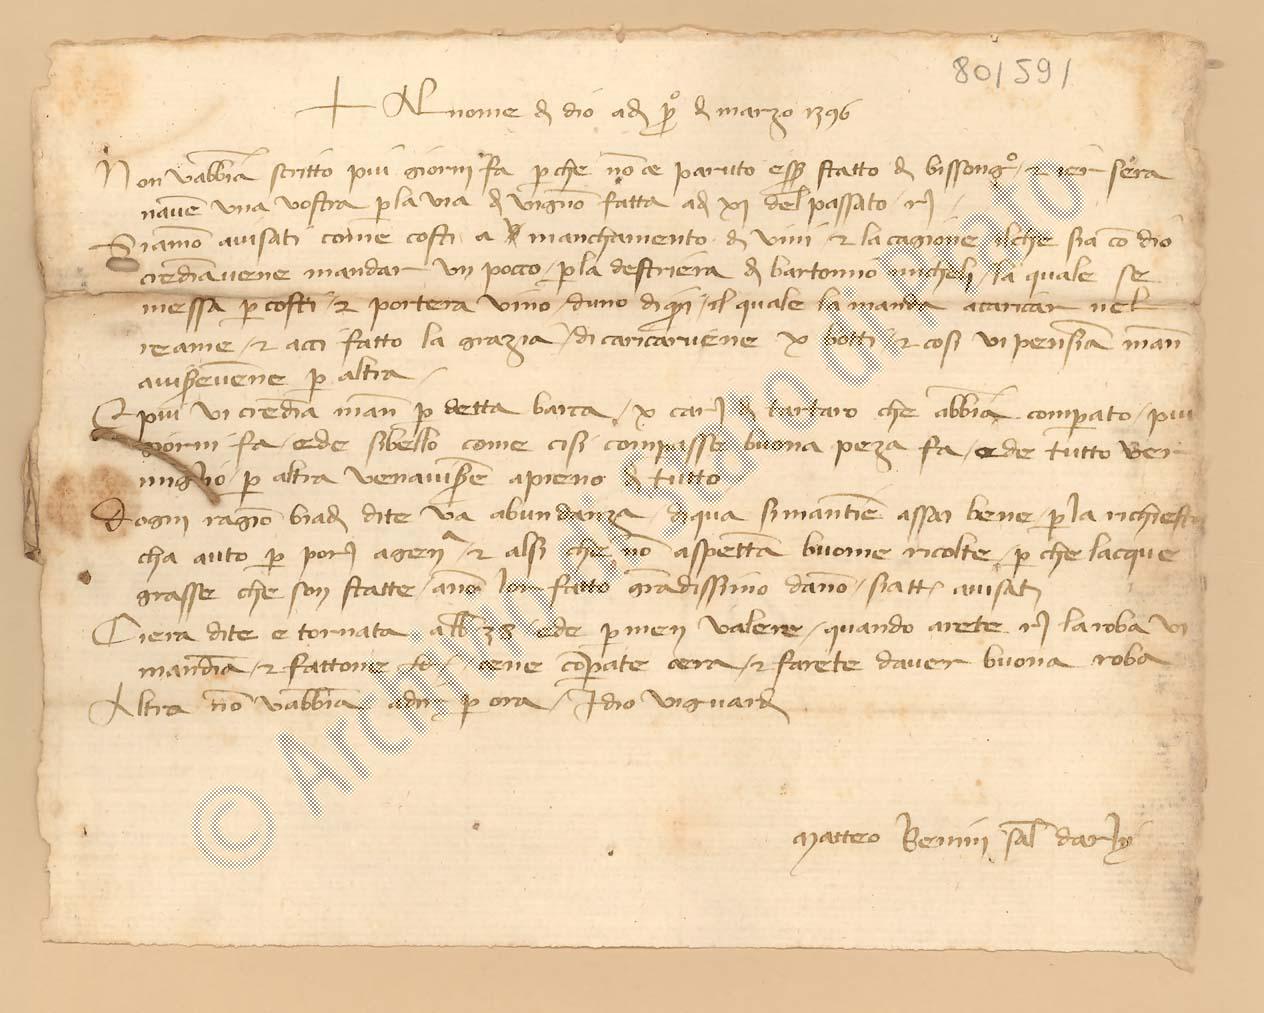 80/59/
+ Al nome di dio adi p° di marzo 1396
Non vabbiā scritto piu giorni fa p che nō ce paruto essr statto di bissongo / e ier sera
navē una vostra p la via di vignō fatta adi xj del passato rj
Siamō avisati come costi a manchamento di vini & la cagione / ilche sia cō dio
crediāvene mandar un pocco / p la destriera di bartonno micheli / la quale se
messa p costi / & portera vino / duno di qui / il quale la manda a caricar nel
reame / & acci fatto la grazia / di caricarvene x botti & cosi vi pensiā mand
avisevene p altra /
E piu vi crediā mand p detta barca / x car di tartaro che abbiā comperato / piu
giorni fa / ede sibello come cisi compasse buona peza fa / ede tutto ver
miglio / p altra venavisē apieno di tutto
Dogni ragiō biadi dite va abundanza / di qua simantiē assai bene / p la richiesta
cha auto p porj a gen^a / & alsi che nō aspettā buone ricolte / p che lacque
grasse che son statte / anō lor fatto grādissimo danō / siatt avisati
Ciera dite e tornata a lb 38 / ede p men valere / quando arete rj la roba vi
mandiā / & fattone fi / cene cōpate cera / & farete daver buona roba
Altra nō vabbiā adir p ora / Idio vi guardi
Matteo Benini sal darli
© Archivio di Stato di Prato